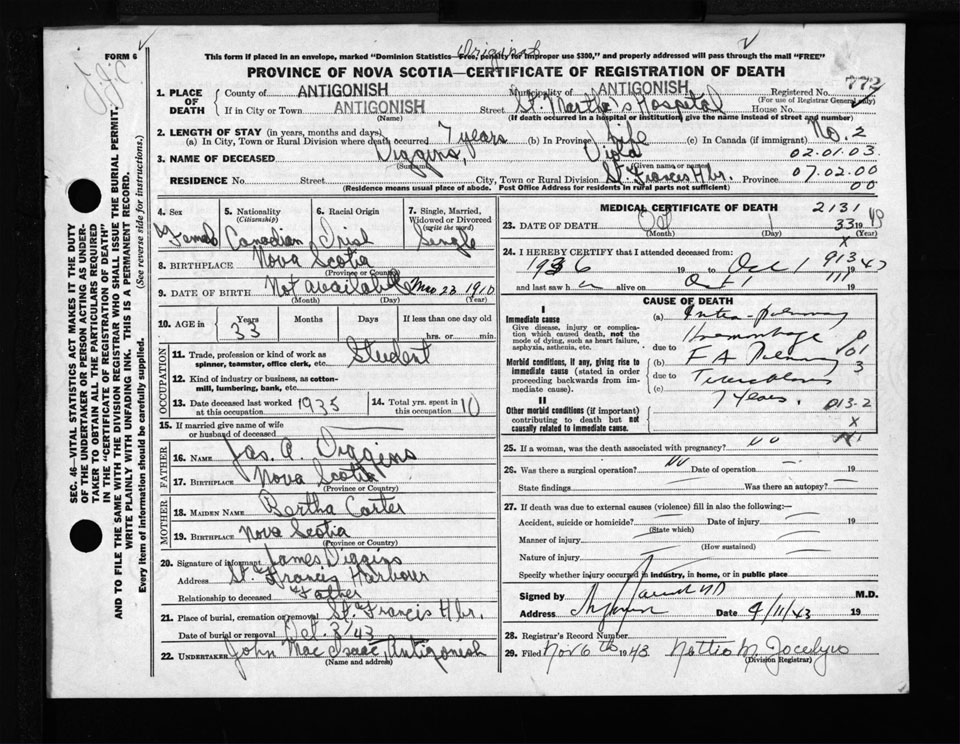 FORM 6
Original
This form if placed in an envelope, marked "Dominion Statistics—Free, penalty for improper use $300," and properly addressed will pass through the mail "FREE"
PROVINCE OF NOVA SCOTIA—CERTIFICATE OF REGISTRATION OF DEATH
1. PLACE OF DEATH County of ANTIGONISH Municipality of ANTIGONISH Registered No. 772
(For use of Registrar General only)
If in City or Town ANTIGONISH Street St. Martha's Hospital House No.
(Name) (If death occurred in a hospital or institution give the name instead of street and number)
2. LENGTH OF STAY (in years, months and days)
(a) In City, Town or Rural Division where death occurred 7 years (b) In Province Life (c) In Canada (if immigrant) No. 2
3. NAME OF DECEASED Diggins, Viola 02.01.03
(Surname) (Given name or names)
RESIDENCE No. Street City, Town or Rural Division St. Francis Hbr. Province 07.02.00
(Residence means usual place of abode. Post Office Address for residents in rural parts not sufficient) 00
SEC. 46—VITAL STATISTICS ACT MAKES IT THE DUTY
OF THE UNDERTAKER OR PERSON ACTING AS UNDER-
TAKER TO OBTAIN ALL THE PARTICULARS REQUIRED
IN THE "CERTIFICATE OF REGISTRATION OF DEATH"
AND TO FILE THE SAME WITH THE DIVISION REGISTRAR WHO SHALL ISSUE THE BURIAL PERMIT.
WRITE PLAINLY WITH UNFADING INK. THIS IS A PERMANENT RECORD.
Every item of information should be carefully supplied. (See reverse side for instructions.)
4. Sex 5. Nationality (Citizenship) 6. Racial Origin 7. Single, Married, Widowed or Divorced (write the word)
Female Canadian Irish Single
8. BIRTHPLACE Nova Scotia
(Province or Country)
9. DATE OF BIRTH Not available Mar 23 1910
(Month) (Day) (Year)
10. AGE in Years Months Days If less than one day old
33 hrs. or min.
OCCUPATION
11. Trade, profession or kind of work as spinner, teamster, office clerk, etc. Student
12. Kind of industry or business, as cotton-mill, lumbering, bank, etc.
13. Date deceased last worked at this occupation 1935 14. Total yrs. spent in this occupation 10
15. If married give name of wife or husband of deceased
FATHER
16. NAME Jas. A. Diggins
17. BIRTHPLACE Nova Scotia
(Province or Country)
MOTHER
18. MAIDEN NAME Bertha Carter
19. BIRTHPLACE Nova Scotia
(Province or Country)
20. Signature of informant James Diggins
Address St. Francis Harbour
Relationship to deceased Father
21. Place of burial, cremation or removal St. Francis Hbr.
Date of burial or removal Oct. 3/43
22. UNDERTAKER John MacIsaac, Antigonish
(Name and address)
MEDICAL CERTIFICATE OF DEATH 2131
23. DATE OF DEATH Oct 1 33 19 43
(Month) (Day) (Year)
24. I HEREBY CERTIFY that I attended deceased from: x
1936 19 to Oct 1 913 19 43
and last saw h alive on Oct 1 111 19
CAUSE OF DEATH
I
Immediate cause
Give disease, injury or complication which caused death, not the mode of dying, such as heart failure, asphyxia, asthenia, etc.
(a) Intra-pulmonary
Hemorrhage
due to
Morbid conditions, if any, giving rise to immediate cause (stated in order proceeding backwards from immediate cause).
(b) F A Pulmonary
due to Tuberculosis
(c)
7 years. 013-2
II
Other morbid conditions (if important) contributing to death but not causally related to immediate cause. x
25. If a woman, was the death associated with pregnancy? no
26. Was there a surgical operation? no Date of operation 19
State findings Was there an autopsy?
27. If death was due to external causes (violence) fill in also the following:—
Accident, suicide or homicide? Date of injury 19
(State which)
Manner of injury
(How sustained)
Nature of injury
Specify whether injury occurred in industry, in home, or in public place
Signed by M.D.
Address Date 9/11/43 19
28. Registrar's Record Number
29. Filed Nov 6th 1943 Nattie M. Jocelyn
(Division Registrar)